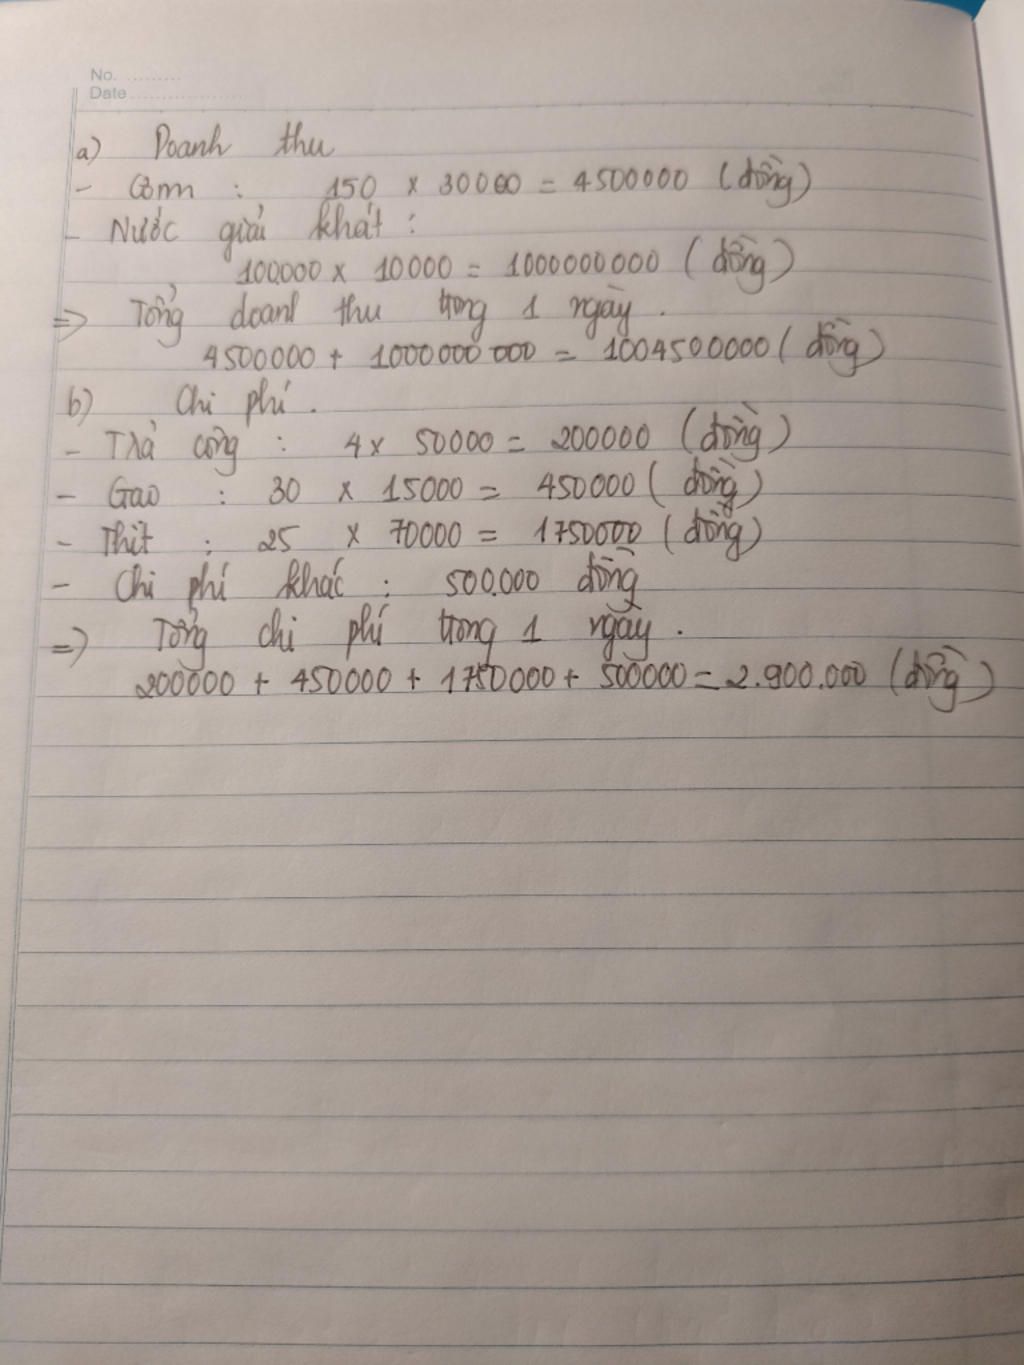 No. ..........
Date ....................
a) Doanh thu
- Cơm : 150 x 30000 = 4500000 (đồng)
- Nước giải khát :
100000 x 10000 = 1000000000 (đồng)
=> Tổng doanh thu trong 1 ngày .
4500000 + 1000000000 = 1004500000 (đồng)
b) Chi phí .
- Trả công : 4 x 50000 = 200000 (đồng)
- Gạo : 30 x 15000 = 450000 (đồng)
- Thịt : 25 x 70000 = 1750000 (đồng)
- Chi phí khác : 500.000 đồng
=> Tổng chi phí trong 1 ngày .
200000 + 450000 + 1750000 + 500000 = 2.900.000 (đồng)